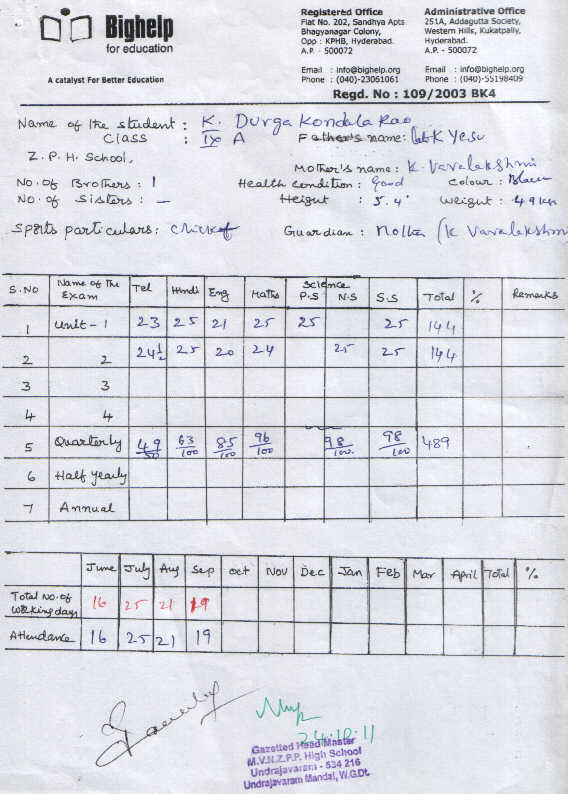 Bighelp
for education
A catalyst For Better Education
Registered Office
Flat No. 202, Sandhya Apts
Bhagyanagar Colony,
Opp : KPHB, Hyderabad.
A.P. - 500072
Email : info@bighelp.org
Phone : (040)-23061061
Administrative Office
251A, Addagutta Society,
Western Hills, Kukatpally,
Hyderabad.
A.P. - 500072
Email : info@bighelp.org
Phone : (040)-55198409
Regd. No : 109/2003 BK4
Name of the student : K. Durga Kondala Rao
Class : IX A Father's name: K Yesu
Z. P. H. School,
Mother's name : K. Varalakshmi
No. of Brothers : 1 Health condition : Good Colour :
No. of Sisters : — Height : 5.4" Weight : 49
Sports particulars : Guardian : Mother (K Varalakshmi
S.NO Name of the Exam Tel Hindi Eng Maths Science P.S N.S S.S Total % Remarks
1 Unit - 1 23 25 21 25 25 25 144
2 2 24½ 25 20 24 25 25 144
3 3
4 4
5 Quarterly 49/50 63/100 85/100 96/100 98/100 98/100 489
6 Half yearly
7 Annual
June July Aug Sep Oct Nov Dec Jan Feb Mar April Total %
Total No. of working days 16 25 21 19
Attendance 16 25 21 19
24.10.11
Gazetted Head Master
M.V.N.Z.P.P. High School
Undrajavaram - 534 216
Undrajavaram Mandal, W.G.Dt.